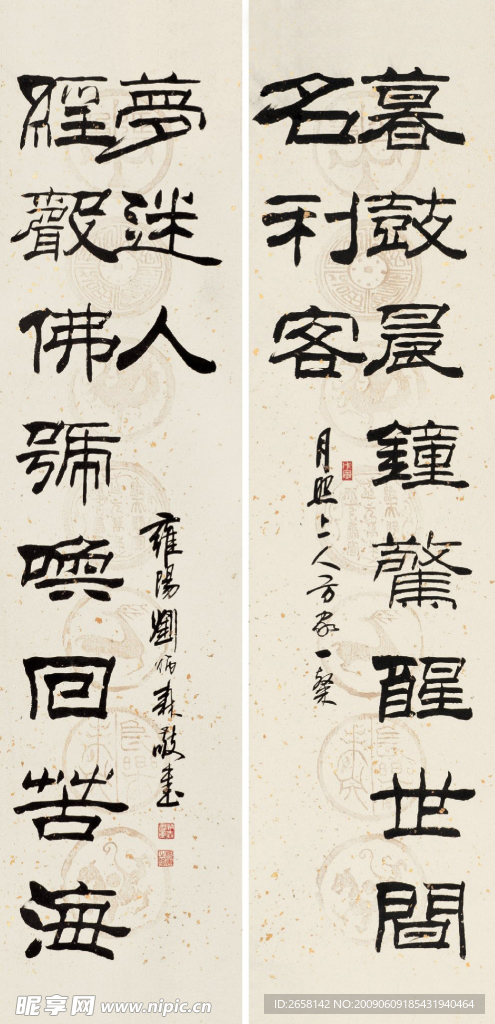 暮鼓晨鐘驚醒世間
名利客
月照上人方家一粲
經聲佛號喚回苦海
夢迷人
雍陽劉炳森敬書
昵享网 www.nipic.cn
ID:2658142 NO:20090609185431940464